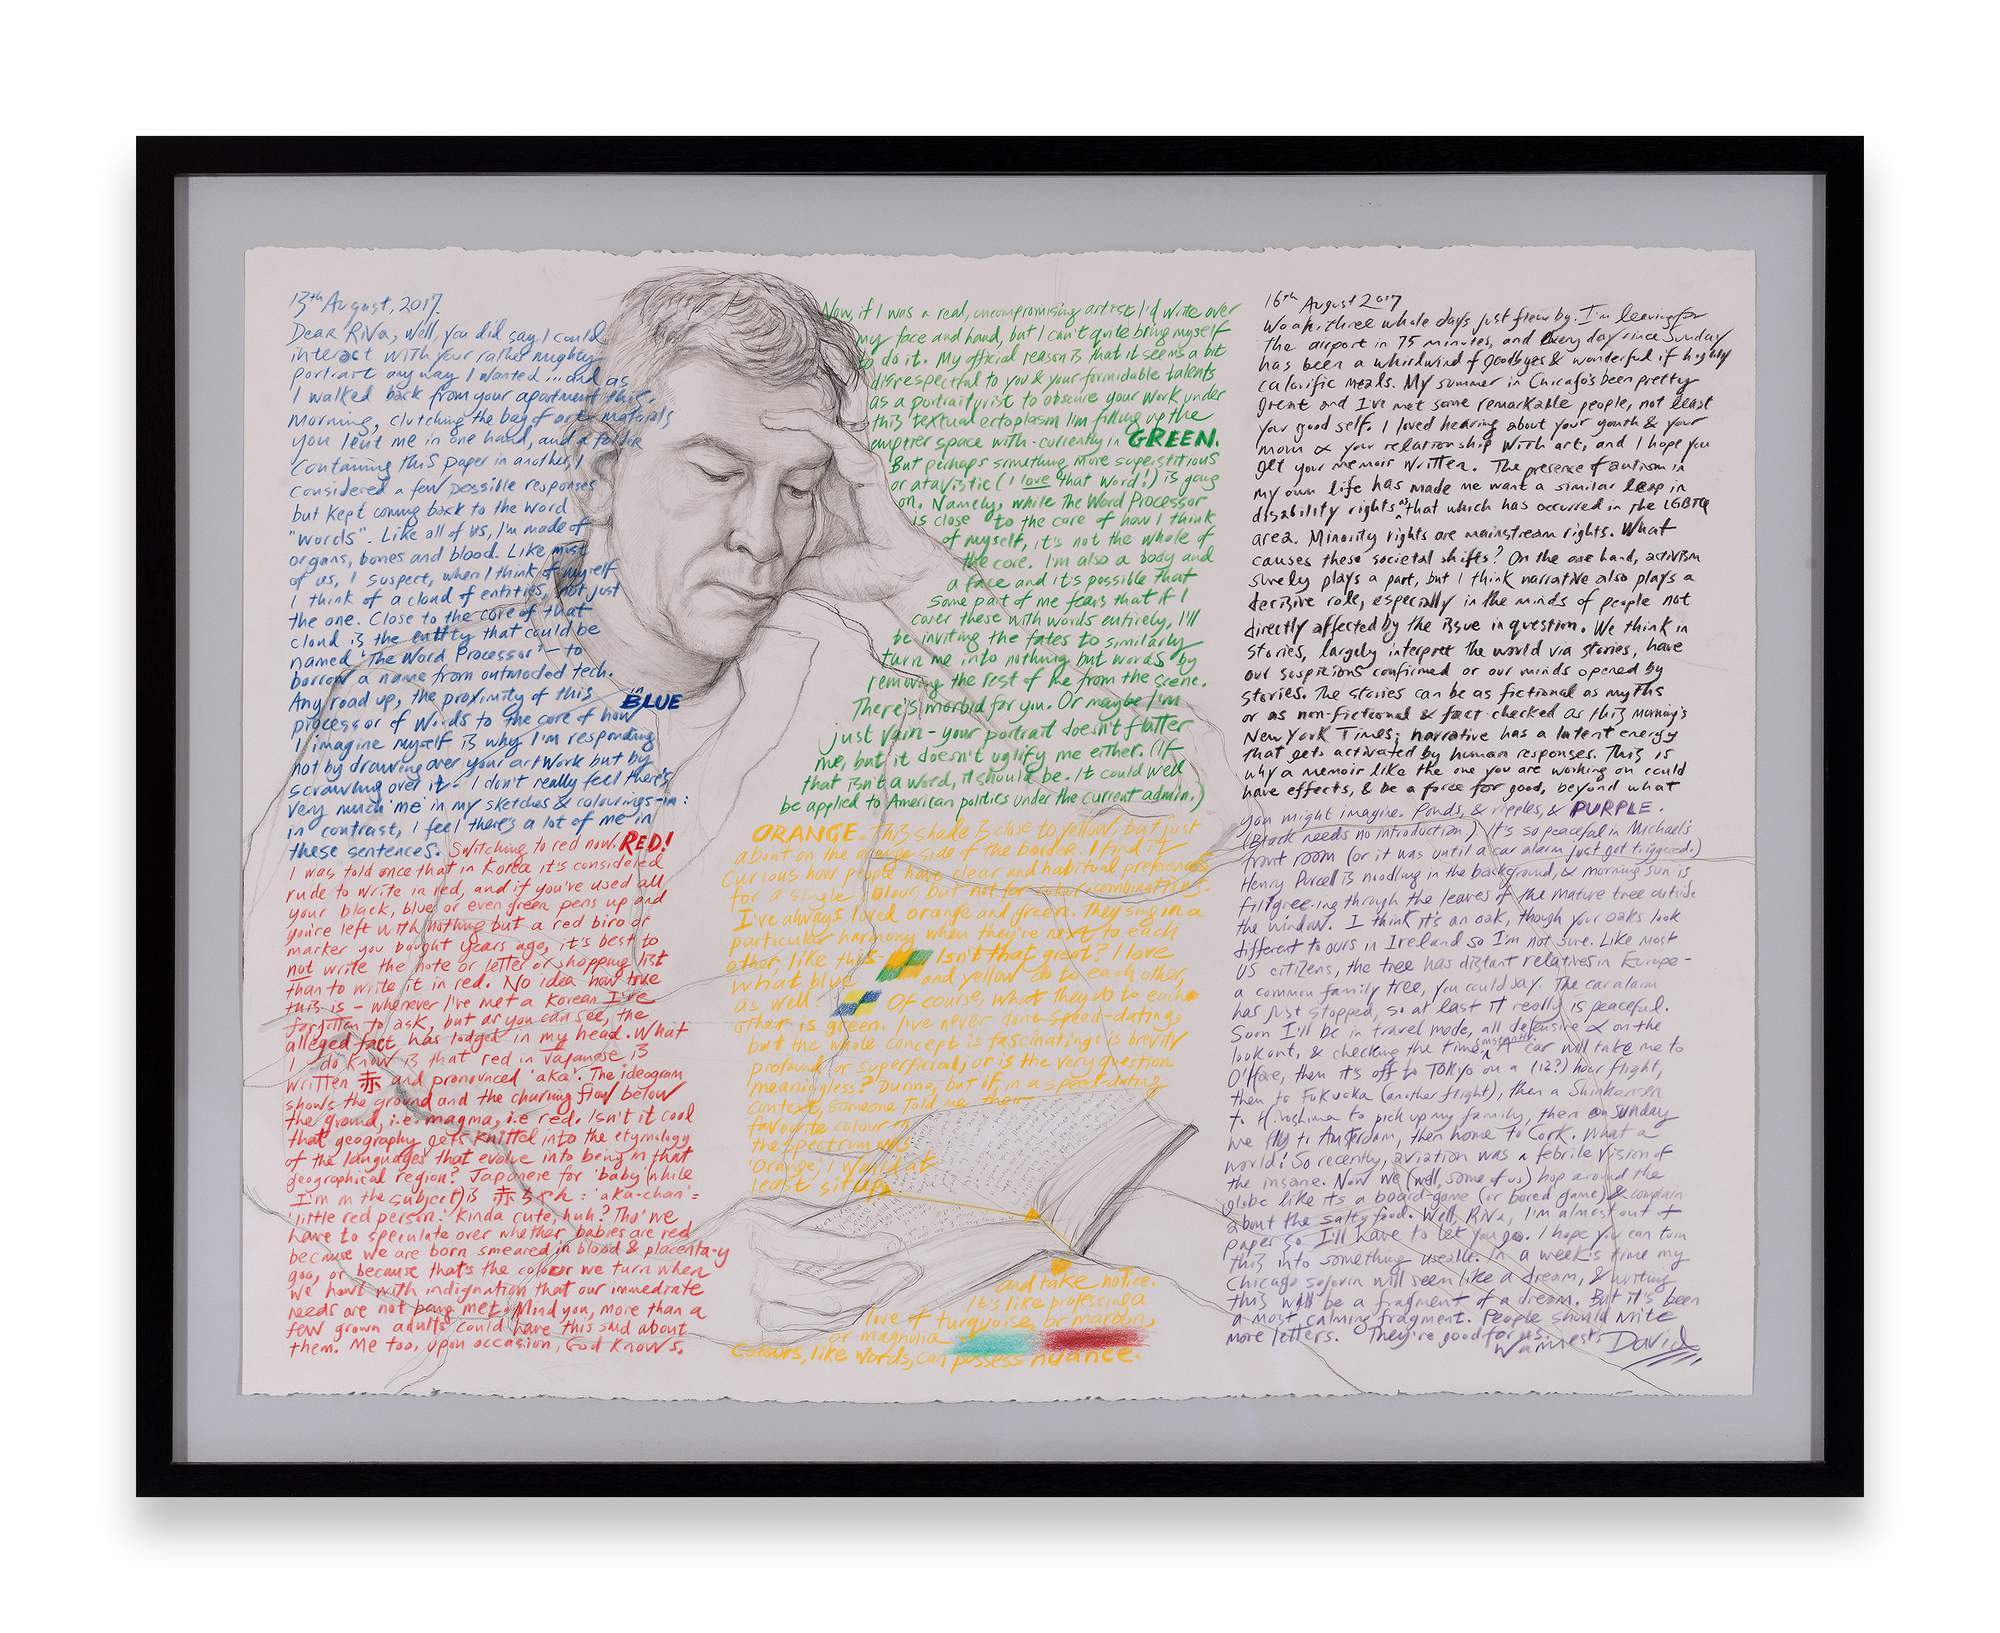 13th August, 2017.
Dear Riva, Well, you did say I could
interact with your rather mighty
portrait any way I wanted ... and as
I walked back from your apartment this
morning, clutching the bag of art materials
you lent me in one hand, and a folder
containing this paper in another, I
considered a few possible responses
but kept coming back to the word
"words". Like all of us, I'm made of
organs, bones and blood. Like most
of us, I suspect, when I think of myself
I think of a cloud of entities, not just
the one. Close to the core of that
cloud is the entity that could be
named 'The Word Processor' – to
borrow a name from outmoded tech.
Any road up, the proximity of this
in BLUE
processor of words to the core of how
I imagine myself is why I'm responding
not by drawing over your artwork but by
scrawling over it – I don't really feel there's
very much 'me' in my sketches & colourings-in:
in contrast, I feel there's a lot of me in
these sentences. Switching to red now. RED!
I was told once that in Korea it's considered
rude to write in red, and if you've used all
your black, blue or even green pens up and
you're left with nothing but a red biro or
marker you bought years ago, it's best to
not write the note or letter or shopping list
than to write it in red. No idea how true
this is – whenever I've met a Korean I've
forgotten to ask, but as you can see, the
alleged fact has lodged in my head. What
I do know is that red in Japanese is
written 赤 and pronounced 'aka'. The ideogram
shows the ground and the churning flow below
the ground, i.e. magma, i.e. red. Isn't it cool
that geography gets knitted into the etymology
of the languages that evolve into being in that
geographical region? Japanese for 'baby' (while
I'm on the subject) is 赤ちゃん: 'aka-chan' =
'little red person.' Kinda cute, huh? Tho' we
have to speculate over whether babies are red
because we are born smeared in blood & placenta-y
goo, or because that's the colour we turn when
we howl with indignation that our immediate
needs are not being met. Mind you, more than a
few grown adults could have this said about
them. Me too, upon occasion, God knows.
Now, if I was a real, uncompromising artist I'd write over
my face and hand, but I can't quite bring myself
to do it. My official reason is that it seems a bit
disrespectful to you & your formidable talents
as a portraiturist to obscure your work under
this textual ectoplasm I'm filling up the
emptier space with - currently in GREEN.
But perhaps something more superstitious
or atavistic (I love that word!) is going
on. Namely, while the Word Processor
is close to the core of how I think
of myself, it's not the whole of
the core. I'm also a body and
a face and it's possible that
some part of me fears that if I
cover these with words entirely, I'll
be inviting the fates to similarly
turn me into nothing but words by
removing the rest of me from the scene.
There's morbid for you. Or maybe I'm
just vain – your portrait doesn't flatter
me, but it doesn't uglify me either. (If
that isn't a word, it should be. It could well
be applied to American politics under the current admin.)
ORANGE. This shade is close to yellow, but just
about on the orange side of the border. I find it
curious how people have clear and habitual preferences
for a single colour, but not for colour-combinations.
I've always loved orange and green. They sing in a
particular harmony when they're next to each
other, like this- Isn't that great? I love
what blue and yellow do to each other,
as well - Of course, what they do to each
other is green. I've never done speed-dating,
but the whole concept is fascinating: is brevity
profound or superficial; or is the very question
meaningless? Dunno, but if, in a speed-dating
context, someone told me their
favourite colour in
the spectrum was
'Orange, I would at
least sit up
and take notice.
It's like professing a
love of turquoise, or maroon,
or magnolia
Colours, like words, can possess nuance.
16th August 2017
Woah: three whole days just flew by. I'm leaving for
the airport in 75 minutes, and every day since Sunday
has been a whirlwind of goodbyes & wonderful if highly
calorific meals. My summer in Chicago's been pretty
great and I've met some remarkable people, not least
your good self. I loved hearing about your youth & your
mom & your relationship with art, and I hope you
get your memoir written. The presence of autism in
my own life has made me want a similar leap in
disability rights as that which has occurred in the LGBTQ
area. Minority rights are mainstream rights. What
causes these societal shifts? On the one hand, activism
surely plays a part, but I think narrative also plays a
decisive role, especially in the minds of people not
directly affected by the issue in question. We think in
stories, largely interpret the world via stories, have
our suspicions confirmed or our minds opened by
stories. The stories can be as fictional as myths
or as non-fictional & fact-checked as this morning's
New York Times; narrative has a latent energy
that gets activated by human responses. This is
why a memoir like the one you are working on could
have effects, & be a force for good, beyond what
you might imagine. Ponds, & ripples, & PURPLE.
(Black needs no introduction.) It's so peaceful in Michael's
front room (or it was until a car alarm just got triggered.)
Henry Purcell is noodling in the background, & morning sun is
filigree-ing through the leaves of the mature tree outside
the window. I think it's an oak, though your oaks look
different to ours in Ireland so I'm not sure. Like most
US citizens, the tree has distant relatives in Europe –
a common family tree, you could say. The car alarm
has just stopped, so at last it really is peaceful.
Soon I'll be in travel mode, all defensive & on the
lookout, & checking the time constantly. A car will take me to
O'Hare, then it's off to Tokyo on a (12?) hour flight,
then to Fukuoka (another flight), then a Shinkansen
to Hiroshima to pick up my family, then on Sunday
we fly to Amsterdam, then home to Cork. What a
world! So recently, aviation was a febrile vision of
the insane. Now we (well, some of us) hop around the
globe like it's a board-game (or bored game) & complain
about the salty food. Well, Riva, I'm almost out of
paper so I'll have to let you go. I hope you can turn
this into something useable. In a week's time my
Chicago sojourn will seem like a dream, & writing
this will be a fragment of a dream. But it's been
a most calming fragment. People should write
more letters. They're good for us.
Warmest, David